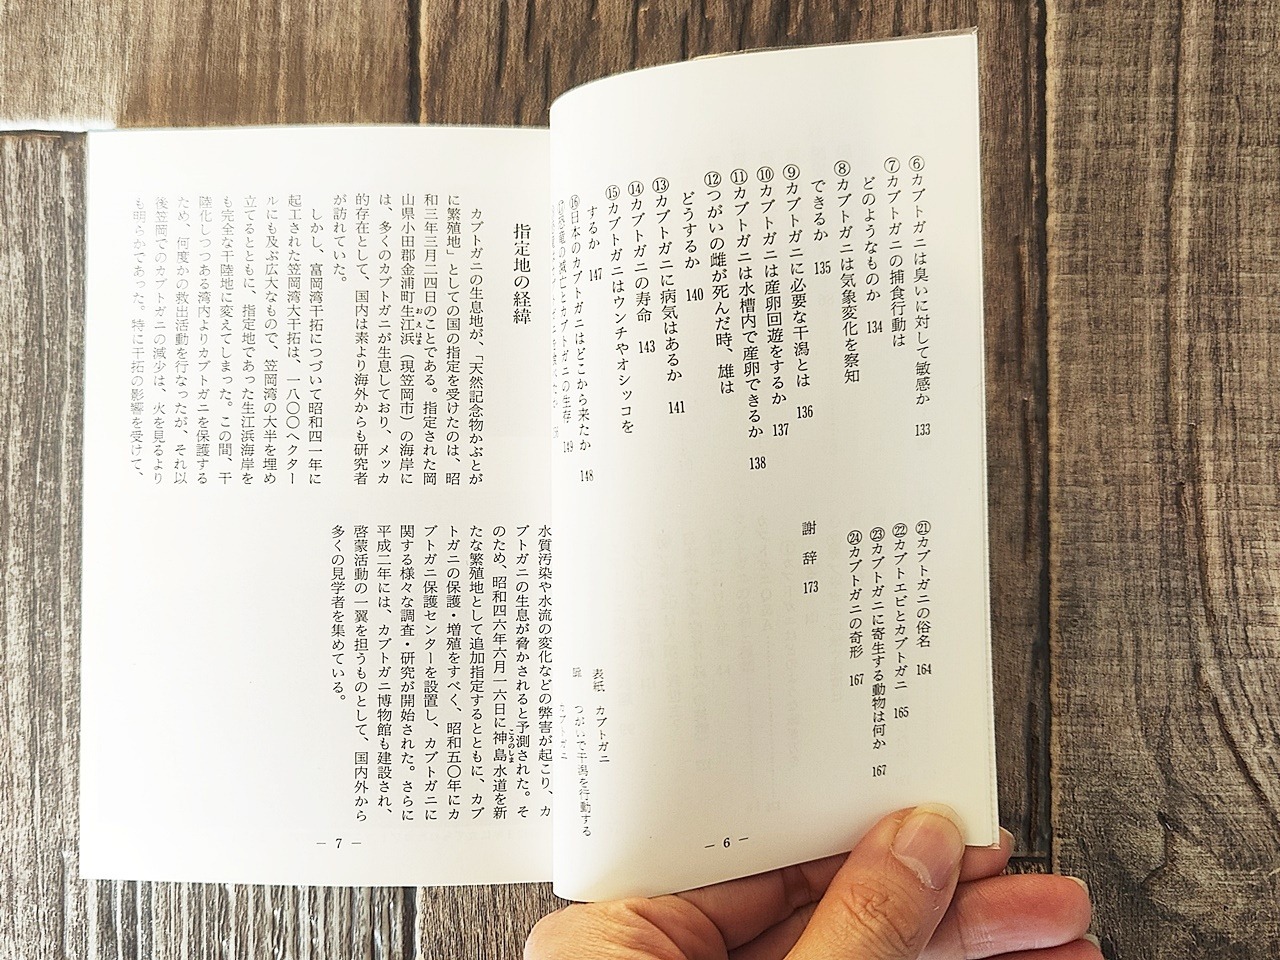 ⑥カブトガニは臭いに対して敏感か 133
⑦カブトガニの捕食行動は
どのようなものか 134
⑧カブトガニは気象変化を察知
できるか 135
⑨カブトガニに必要な干潟とは 136
⑩カブトガニは産卵回遊をするか 137
⑪カブトガニは水槽内で産卵できるか 138
⑫つがいの雌が死んだ時、雄は
どうするか 140
⑬カブトガニに病気はあるか 141
⑭カブトガニの寿命 143
⑮カブトガニはウンチやオシッコを
するか 147
⑯日本のカブトガニはどこから来たか 148
恐竜の滅亡とカブトガニの生存 149
㉑カブトガニの俗名 164
㉒カブトエビとカブトガニ 165
㉓カブトガニに寄生する動物は何か 167
㉔カブトガニの奇形 167
謝辞 173
表紙 カブトガニ
扉 つがいで干潟を行動する
カブトガニ
― 6 ―
指定地の経緯
カブトガニの生息地が、「天然記念物かぶとが
に繁殖地」としての国の指定を受けたのは、昭
和三年三月二四日のことである。指定された岡
山県小田郡金浦町生江浜（現笠岡市）の海岸に
おえはま
は、多くのカブトガニが生息しており、メッカ
的存在として、国内は素より海外からも研究者
が訪れていた。
しかし、富岡湾干拓につづいて昭和四一年に
起工された笠岡湾大干拓は、一八〇〇ヘクター
ルにも及ぶ広大なもので、笠岡湾の大半を埋め
立てるとともに、指定地であった生江浜海岸を
も完全な干陸地に変えてしまった。この間、干
陸化しつつある湾内よりカブトガニを保護する
ため、何度かの救出活動を行なったが、それ以
後笠岡でのカブトガニの減少は、火を見るより
も明らかであった。特に干拓の影響を受けて、
水質汚染や水流の変化などの弊害が起こり、カ
ブトガニの生息が脅かされると予測された。そ
のため、昭和四六年六月一六日に神島水道を新
こうのしま
たな繁殖地として追加指定するとともに、カブ
トガニの保護・増殖をすべく、昭和五〇年にカ
ブトガニ保護センターを設置し、カブトガニに
関する様々な調査・研究が開始された。さらに
平成二年には、カブトガニ博物館も建設され、
啓蒙活動の一翼を担うものとして、国内外から
多くの見学者を集めている。
― 7 ―